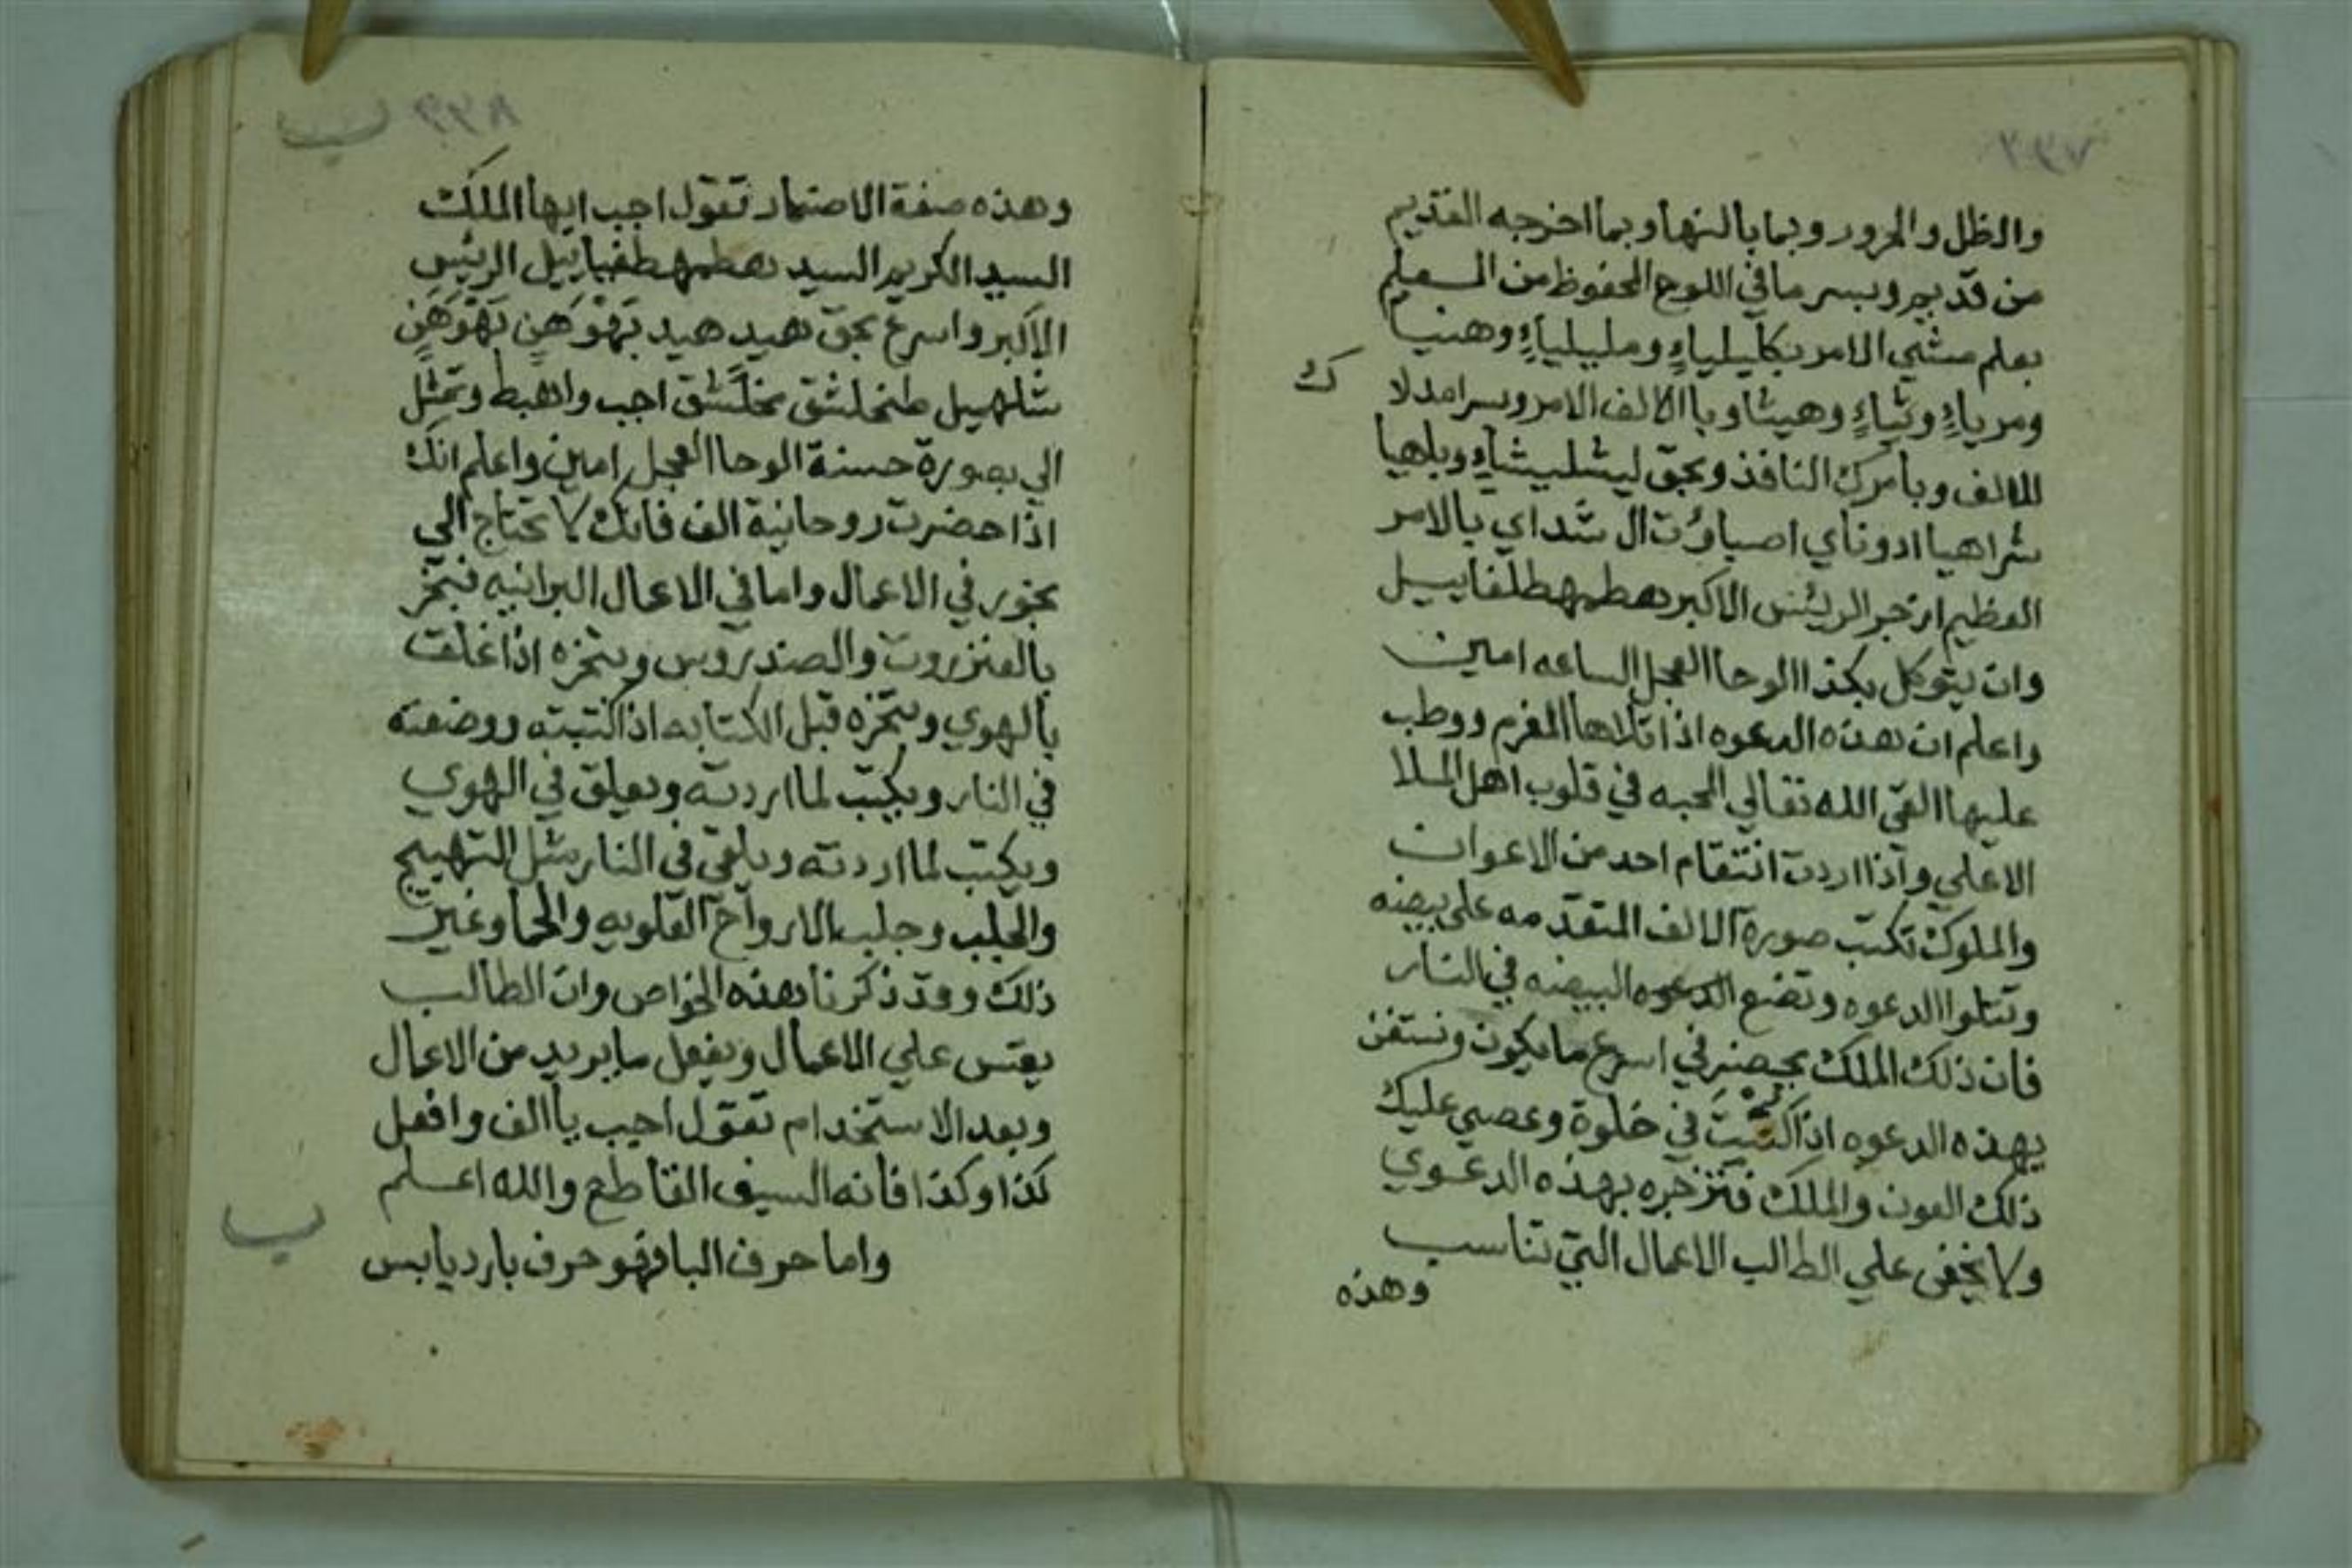 والظل والحرور وبما بالنها وبما اخرجه القديم
من قديم وبسر ما في اللوح المحفوظ من المسعلم
بعلم مشي الامر بكليلياءٍ ومليلياءٍ وهنيا
ومرياءٍ وثياءٍ وهيثا وبا الالف الامر وسر امد لا
للالف وبامرك النافذ وبحق ليشلبيشاءٍ وبلهيا
شراهيا ادوناي اصباؤت ال شداي بالامر
العظيم ازجر الريئس الاكبر هطمهطلفاييل
وان يتوكل بكذا الوحا العجل الساعه امين
واعلم ان هذه الدعوه اذا تلاها المعزم ووظب
عليها القي الله تعالي المحبه في قلوب اهل الملا
الاعلي واذا اردت انتقام احد من الاعوان
والملوك تكتب صورة الالف المتقدمه علي بيضه
وتتلوا الدعوه وتضع الدعوه البيضه في النار
فان ذلك الملك يحضر في اسرع ما يكون
بهذه الدعوه اذا كنت في خلوة وعصي عليك
ذلك العون والملك فتزجره بهذه الدعوي
ولا يخفي علي الطالب الاعمال التي تناسب
وهذه
ك
وهذه صفة الاضمار تقول اجب ايها الملك
السيد الكريم السيد هطمهطفياييل الريئس
الاكبر واسرع بحق هيد هيد بَهْوَهَنٍ بَهْوَهَنٍ
شلهيل طنخلشق نخلشق اجب واهبط وتمثل
الي بصورة حسنة الوحا العجل امين واعلم انك
اذا حضرت روحانية الف فانك لا تحتاج الي
بخور في الاعمال واما في الاعمال البرانيه فبخر
بالعنزروت والصندروس وبخره اذا غلقت
بالهوي وبخره قبل الكتابه اذا كتبته ووضعته
في النار ويكتب لما اردته ويعلق في الهوي
ويكتب لما اردته ويلقي في النار مثل التهييج
والجلب وجلب الارواح العلويه والحما وغير
ذلك وقد ذكرنا هذه الخواص وان الطالب
يقس علي الاعمال ويفعل ما يريد من الاعمال
وبعد الاستخدام تقول اجيب يا الف وافعل
كذا وكذا فانه السيف القاطع والله اعلم
واما حرف البا فهو حرف بارد يابس
ب